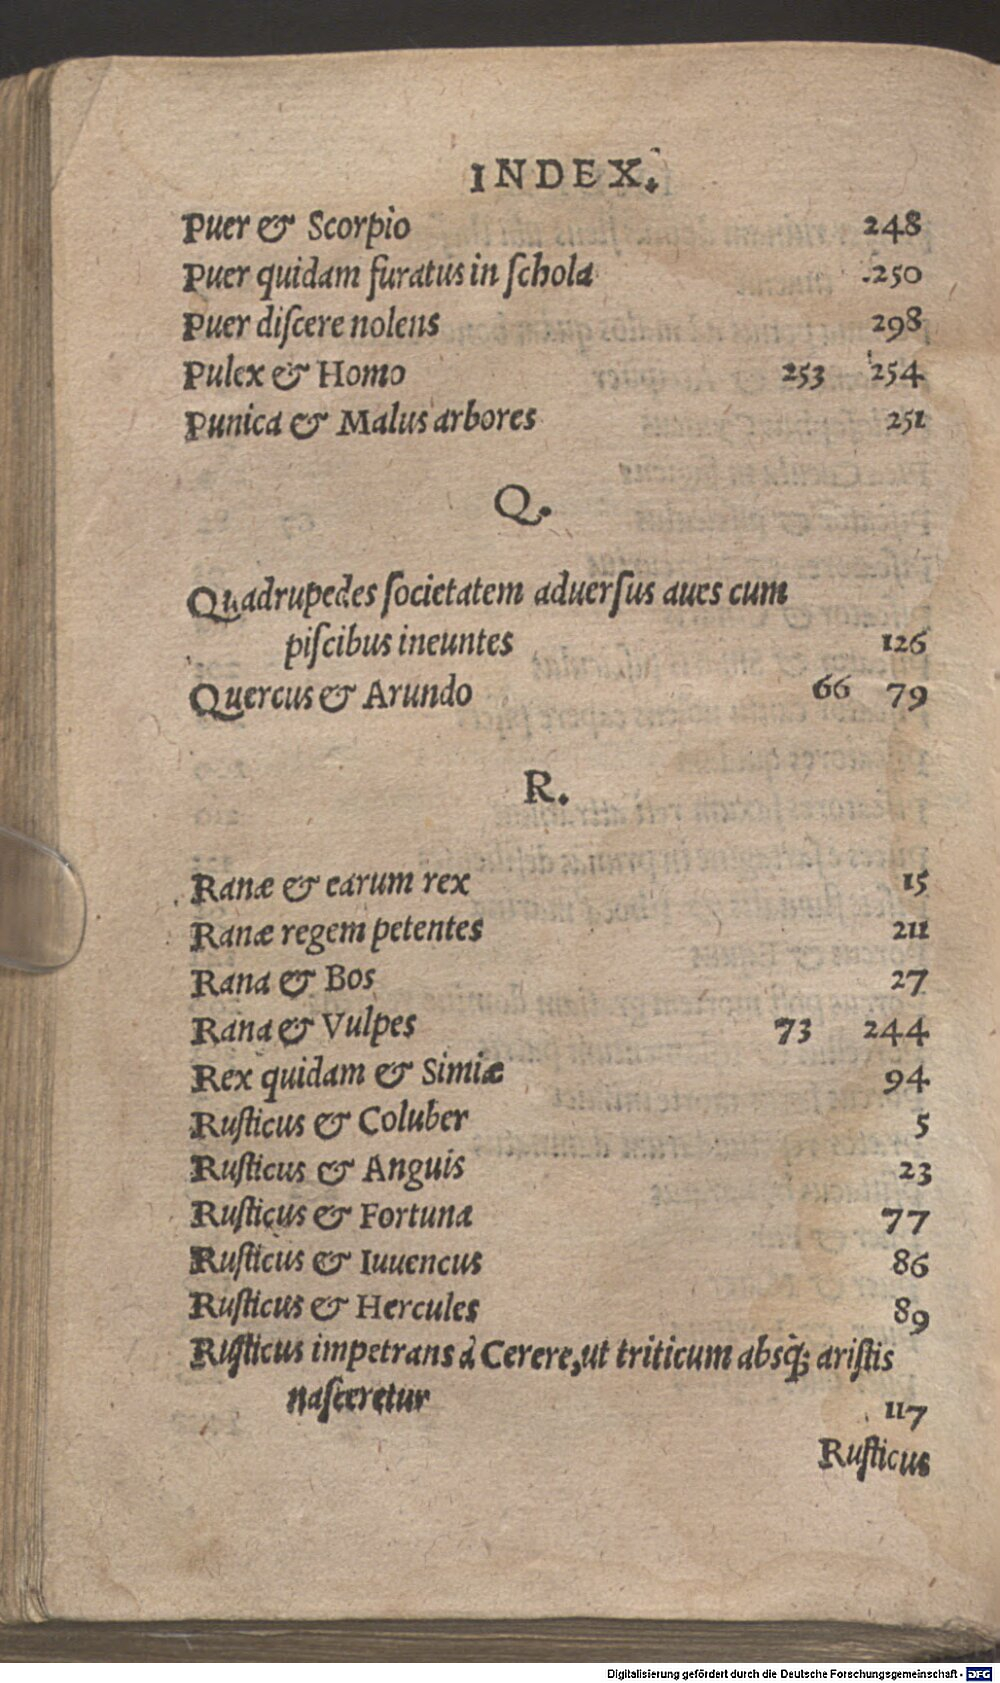 INDEX.
Puer & Scorpio 248
Puer quidam furatus in ſchola 250
Puer diſcere nolens 298
Pulex & Homo 253 254
Punica & Malus arbores 251
Q.
Quadrupedes ſocietatem aduerſus aues cum
piſcibus ineuntes 126
Quercus & Arundo 66 79
R.
Ranæ & earum rex 15
Ranæ regem petentes 211
Rana & Bos 27
Rana & Vulpes 73 244
Rex quidam & Simiæ 94
Ruſticus & Coluber 5
Ruſticus & Anguis 23
Ruſticus & Fortuna 77
Ruſticus & Iuuencus 86
Ruſticus & Hercules 89
Ruſticus impetrans à Cerere, ut triticum absq́; ariſtis
naſceretur 117
Ruſticus
Digitalisierung gefördert durch die Deutsche Forschungsgemeinschaft - DFG